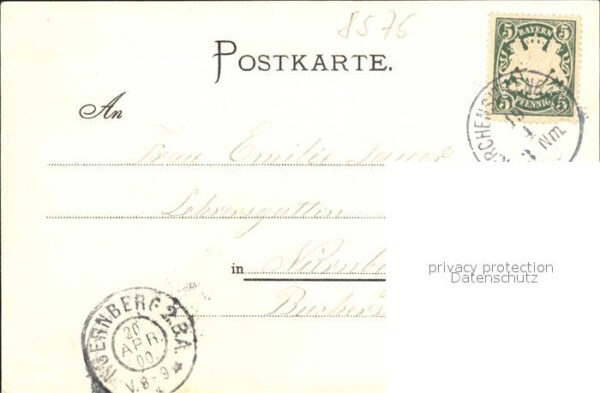 8576
POSTKARTE.
5 BAYERN 5
5 PFENNIG 5
19
4
Nm
An
Frau Emilie
Lehrersgattin
in Nürnb
privacy protection
Datenschutz
NUERNBERG 2.B.A.
20
APR.
00.
V.8-9